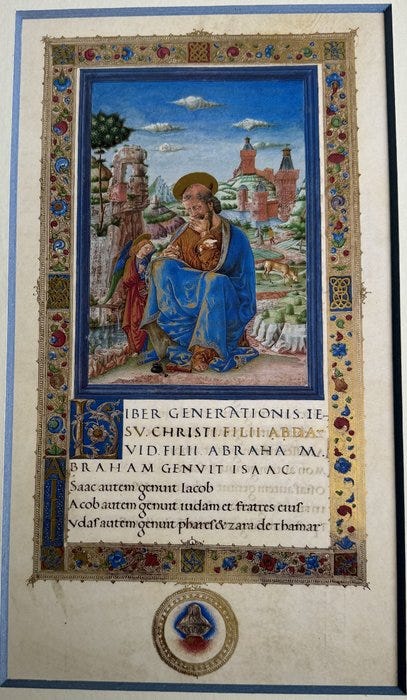 LIBER GENERATIONIS. IE-
SV. CHRISTI FILII ABDA-
VID. FILII ABRAHAM.
ABRAHAM GENVIT ISAAC
Saac autem genuit Iacob
Acob autem genuit iudam et fratres eius
Vdas autem genuit phares & zara de Thamar